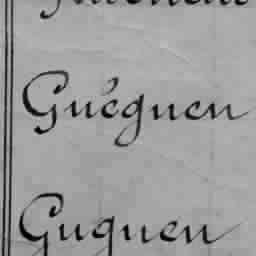 Guéguen
Guguen